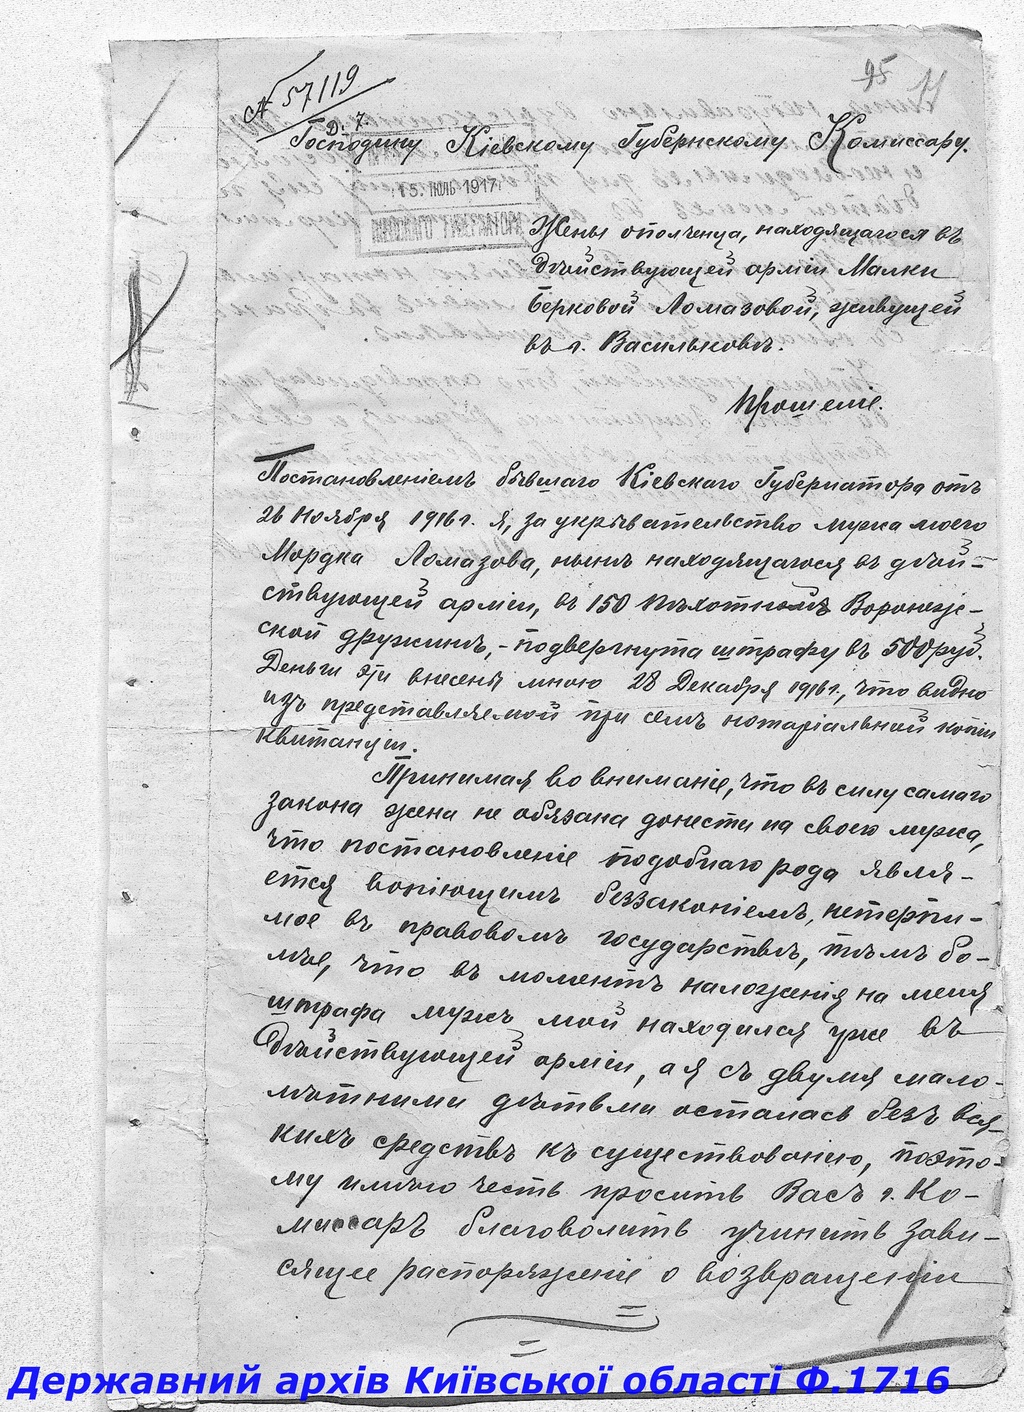 № 57119
95
Д. 7.
Господину Кіевскому Губернскому Комиссару.
15. ІЮЛЬ 1917
ГУБЕРНАТОРА
Жены ополченца, находящагося въ
дѣйствующей арміи Малки
Берковой Ломазовой, живущей
въ г. Васильковѣ.
Прошеніе.
Постановленіемъ бывшаго Кіевскаго Губернатора отъ
26 Ноября 1916 г. я, за укрывательство мужа моего
Мордка Ломазова, нынѣ находящагося въ дѣй-
ствующей арміи, въ 150 пѣхотной Воронеж-
ской дружинѣ, - подвергнута штрафу въ 500 руб.
Деньги эти внесены мною 28 Декабря 1916 г., что видно
изъ представляемой при семъ нотаріальной копіи
квитанціи.
Принимая во вниманіе, что въ силу самаго
закона жена не обязана донести на своего мужа,
что постановленіе подобнаго рода явля-
ется вопіющимъ беззаконіемъ, нетерпи-
мое въ правовомъ государствѣ, тѣмъ бо-
лѣе, что въ моментъ наложенія на меня
штрафа мужъ мой находился уже въ
дѣйствующей арміи, а я съ двумя мало-
лѣтними дѣтьми осталась безъ вся-
кихъ средствъ къ существованію, поэто-
му имѣю честь просить Васъ г. Ко-
миссаръ благоволить учинить зави-
сящее распоряженіе о возвращеніи
Державний архів Київської області Ф.1716